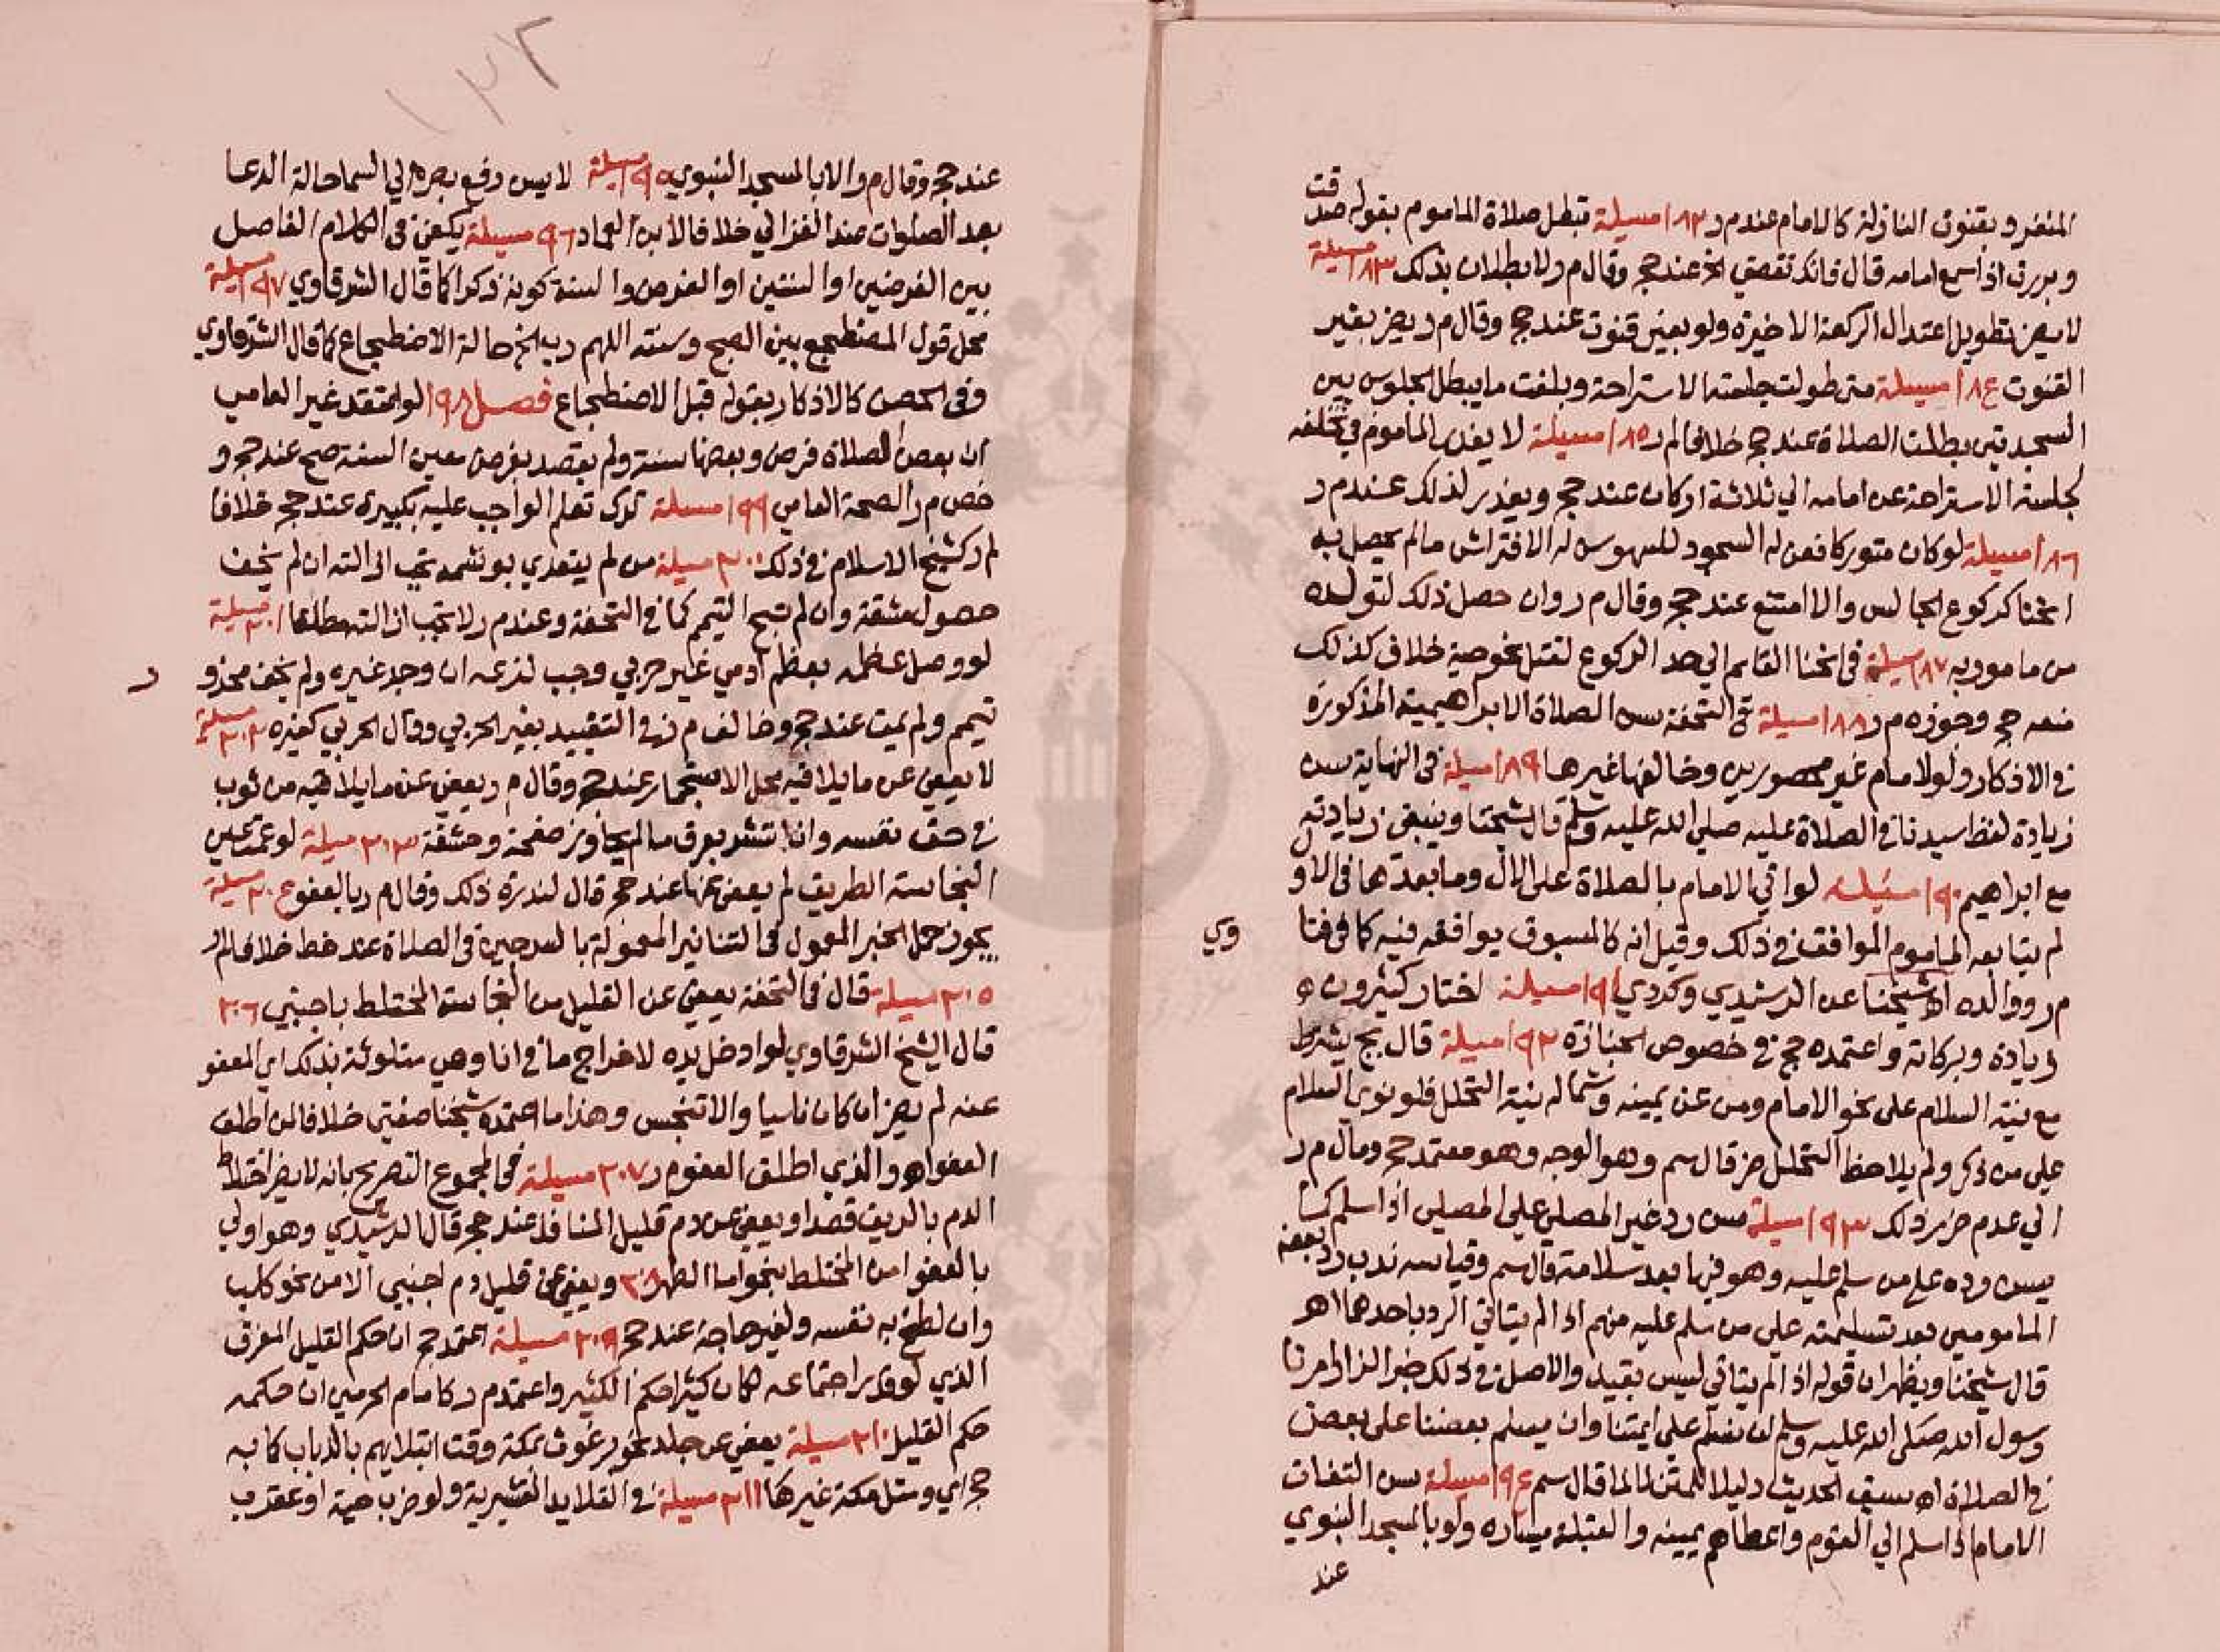 المنفرد بقنوت النازلة كالامام عند م ر ١٨٢ مسيلة تبطل صلاة الماموم بقوله صدقت
وبررت اذا سمع امامه قال فانك تقضي الخ عند حج وقال م ر لا بطلان بذلك ١٨٣ مسيلة
لا يضر تطويل اعتدال الركعة الاخيرة ولو بغير قنوت عند حج وقال م ر يضر بغير
القنوت ١٨٤ مسيلة متى طولت جلسة الاستراحة وبلغت ما يبطل الجلوس بين
السجدتين بطلت الصلاة عند حج خلافا لم ر ١٨٥ مسيلة لا يعذر الماموم في تخلفه
لجلسة الاستراحة عن امامه الي ثلاثة اركان عند حج ويعذر لذلك عند م ر
١٨٦ مسيلة لو كان متوركا فعن له السجود للسهو سن له الافتراش ما لم يحصل به
انحنا كركوع الجالس والا امتنع عند حج وقال م ر وان حصل ذلك لتولده
من مامور به ١٨٧ مسيلة في انحنا القايم الي حد الركوع لقتل نحو حية خلاف كذلك
منعه حج وجوزه م ر ١٨٨ مسيلة في التحفة يسن الصلاة الابراهيمية المذكورة
في الاذكار ولو لامام غير محصورين وخالفها غيرها ١٨٩ مسيلة في النهاية يسن
زيادة لفظ سيدنا في الصلاة عليه صلي الله عليه وسلم قال شيخنا وينبغي زيادته
مع ابراهيم ١٩٠ مسيلة لو اتي الامام بالصلاة علي الال وما بعدها في الاو
لم يتابعه الماموم الموافق في ذلك وقيل انه كالمسبوق يوافقه فيه كما في فتا
وي
م ر ووالده اه شيخنا عن الرشيدي وكردي ١٩١ مسيلة اختار كثيرون
زيادة وبركاته واعتمده حج في خصوص الجنازة ١٩٢ مسيلة قال بج يشترط
مع نية السلام علي نحو الامام ومن عن يمينه وشماله نية التحلل فلو نوي السلام
علي من ذكر ولم يلاحظ التحلل ضر قال سم وهو الوجه وهو معتمد حج ومال م ر
الي عدم ضرر ذلك ١٩٣ مسيلة يسن رد غير المصلي علي المصلي اذا سلم كما
يسن رده علي من سلم عليه وهو فيها بعد سلامه قال سم وقياسه ندب رد بعض
المامومين بعد تسليمته علي من سلم عليه منهم اذا لم يتاتي الرد باحدهما اهـ
قال شيخنا ويظهر ان قوله اذا لم يتاتي ليس بقيد والاصل في ذلك خبر البزار امرنا
رسول الله صلي الله عليه وسلم ان نسلم علي ايمتنا وان يسلم بعضنا علي بعض
في الصلاة اه بسيف الحديث دليلا للمتن لما قال سم ١٩٤ مسيلة يسن التفات
الامام اذا سلم الي القوم واعطاهم يمينه والقبلة يساره ولو بالمسجد النبوي
عند
١٣٢
عند حج وقال م ر الا بالمسجد النبوي ١٩٥ مسيلة لا يسن رفع بصره الي السما حالة الدعا
بعد الصلوات عند الغزالي خلافا لابن العماد ١٩٦ مسيلة يكفي في الكلام الفاصل
بين الفرضين او السنتين او الفرض والسنة كونه ذكرا كما قال الشرقاوي ١٩٧ مسيلة
محل قول المضطجع بين الصبح وسنته اللهم رب الخ حالة الاضطجاع كما قال الشرقاوي
وفي الحصن كالاذكار يقوله قبل الاضطجاع فصل ١٩٨ لو اعتقد غير العامي
ان بعض الصلاة فرض وبعضها سنة ولم يقصد بفرض معين السنة صح عند حج و
خص م ر الصحة العامي ١٩٩ مسيلة ترك تعلم الواجب عليه كبيرة عند حج خلافا
لم ر كشيخ الاسلام في ذلك ٢٠٠ مسيلة من لم يتعدي بوشمه تجب ازالته ان لم يخف
حصول مشقة وان لم تبح التيمم كما في التحفة وعند م ر لا تجب ازالته مطلقا ٢٠١ مسيلة
لو وصل عظمه بعظم ادمي غير حربي وجب نزعه ان وجد غيره ولم يخف محذو
ر
تيمم ولم يمت عند حج وخالف م ر في التقييد بغير الحربي وقال الحربي كغيره ٢٠٢ مسيلة
لا يعفي عن ما يلاقيه محل الاستجمار عند حج وقال م ر يعفي عن ما يلاقيه من ثوب
في حق نفسه وان انتشر بعرق ما لم يجاوز صفحة وحشفة ٢٠٣ مسيلة لو عمت عين
النجاسة الطريق لم يعفي عنها عند حج قال لندرة ذلك وقال م ر بالعفو ٢٠٤ مسيلة
يجوز حمل الخبز المعمول في التنانير المعمولة بالسرجين في الصلاة عند خط خلافا لم ر
٢٠٥ مسيلة قال في التحفة يعفي عن القليل من النجاسة المختلط باجنبي ٢٠٦
قال الشيخ الشرقاوي لو ادخل يده لاخراج ما في انا وهي متلوثة بذلك اي المعفو
عنه لم يضر ان كان ناسيا والا تنجس وهذا ما اعتمده شيخنا حفني خلافا لمن اطلق
العفو اه والذي اطلق العفو م ر ٢٠٧ مسيلة في المجموع التصريح بانه لا يضر اختلاط
الدم بالريق قصدا ويعفي عن دم قليل المنافذ عند حج قال الرشيدي وهو اولي
بالعفو من المختلط بنحو ما الطهر ٢٠٨ ويعفي عن قليل دم اجنبي الا من نحو كلب
وان لطخ به نفسه ولغير حاجة عند حج ٢٠٩ مسيلة اعتمد حج ان حكم القليل المفرق
الذي لو قدر اجتماعه كان كثيرا حكم الكثير واعتمد م ر كامام الحرمين ان حكمه
حكم القليل ٢١٠ مسيلة يعفي عن جلد نحو برغوث بمكة وقت ابتلايهم بالذباب كما به
حج اي ومثل مكة غيرها ٢١١ مسيلة في القلايد القشيرية ولو ضرب حية او عقرب